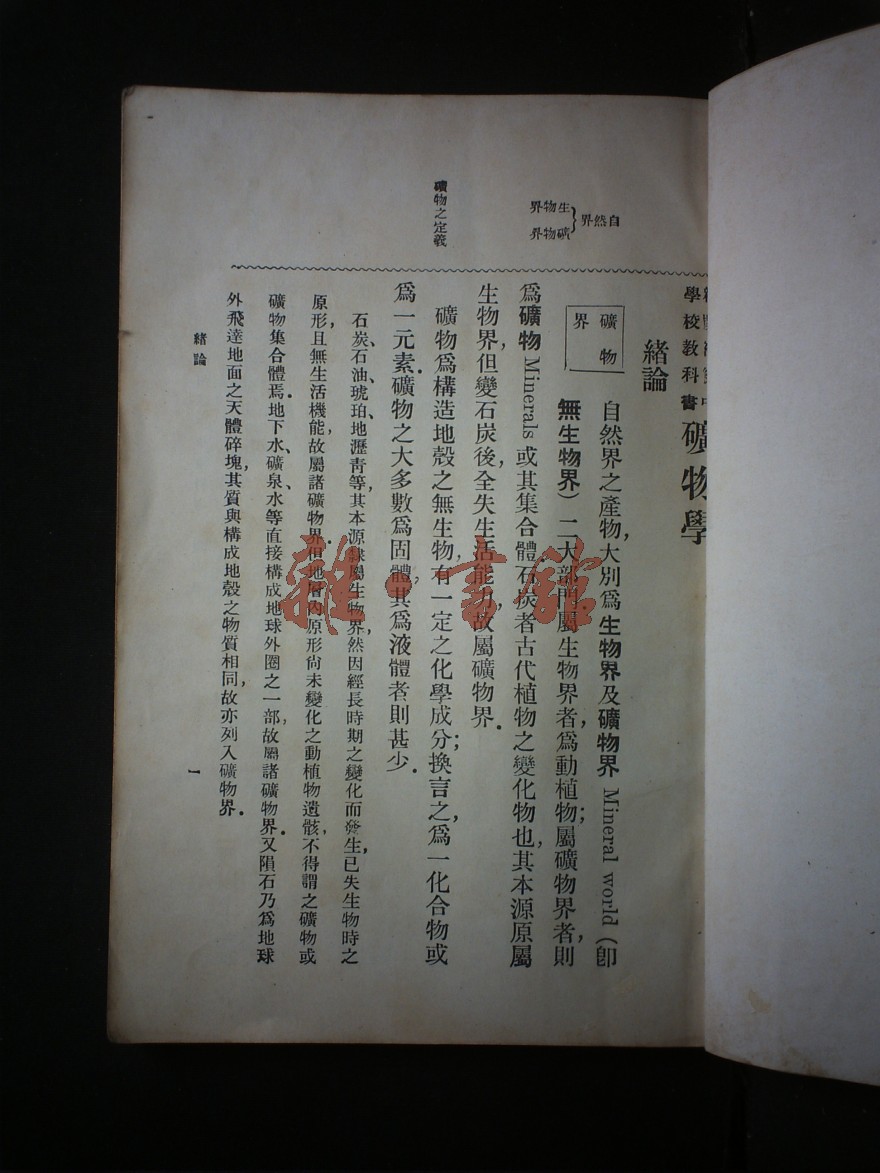 學校教科書
礦物學
緒論
自然界{生物界
礦物界
礦物界
自然界之產物,大別爲生物界及礦物界 Mineral world (卽
無生物界) 二大部門屬生物界者,爲動植物;屬礦物界者,則
爲礦物 Minerals 或其集合體.石炭者古代植物之變化物也,其本源原屬
生物界,但變石炭後,全失生活能力,故屬礦物界.
礦物之定義
礦物爲構造地殼之無生物,有一定之化學成分;換言之,爲一化合物或
爲一元素.礦物之大多數爲固體,其爲液體者則甚少.
石炭、石油、琥珀、地瀝青等,其本源隸屬生物界,然因經長時期之變化而發生,已失生物時之
原形,且無生活機能,故屬諸礦物界.但地層內原形尙未變化之動植物遺骸,不得謂之礦物或
礦物集合體焉.地下水、礦泉、水等直接構成地球外圈之一部,故屬諸礦物界.又隕石乃爲地球
外飛達地面之天體碎塊,其質與構成地殼之物質相同,故亦列入礦物界.
緒論
一
雜·書館